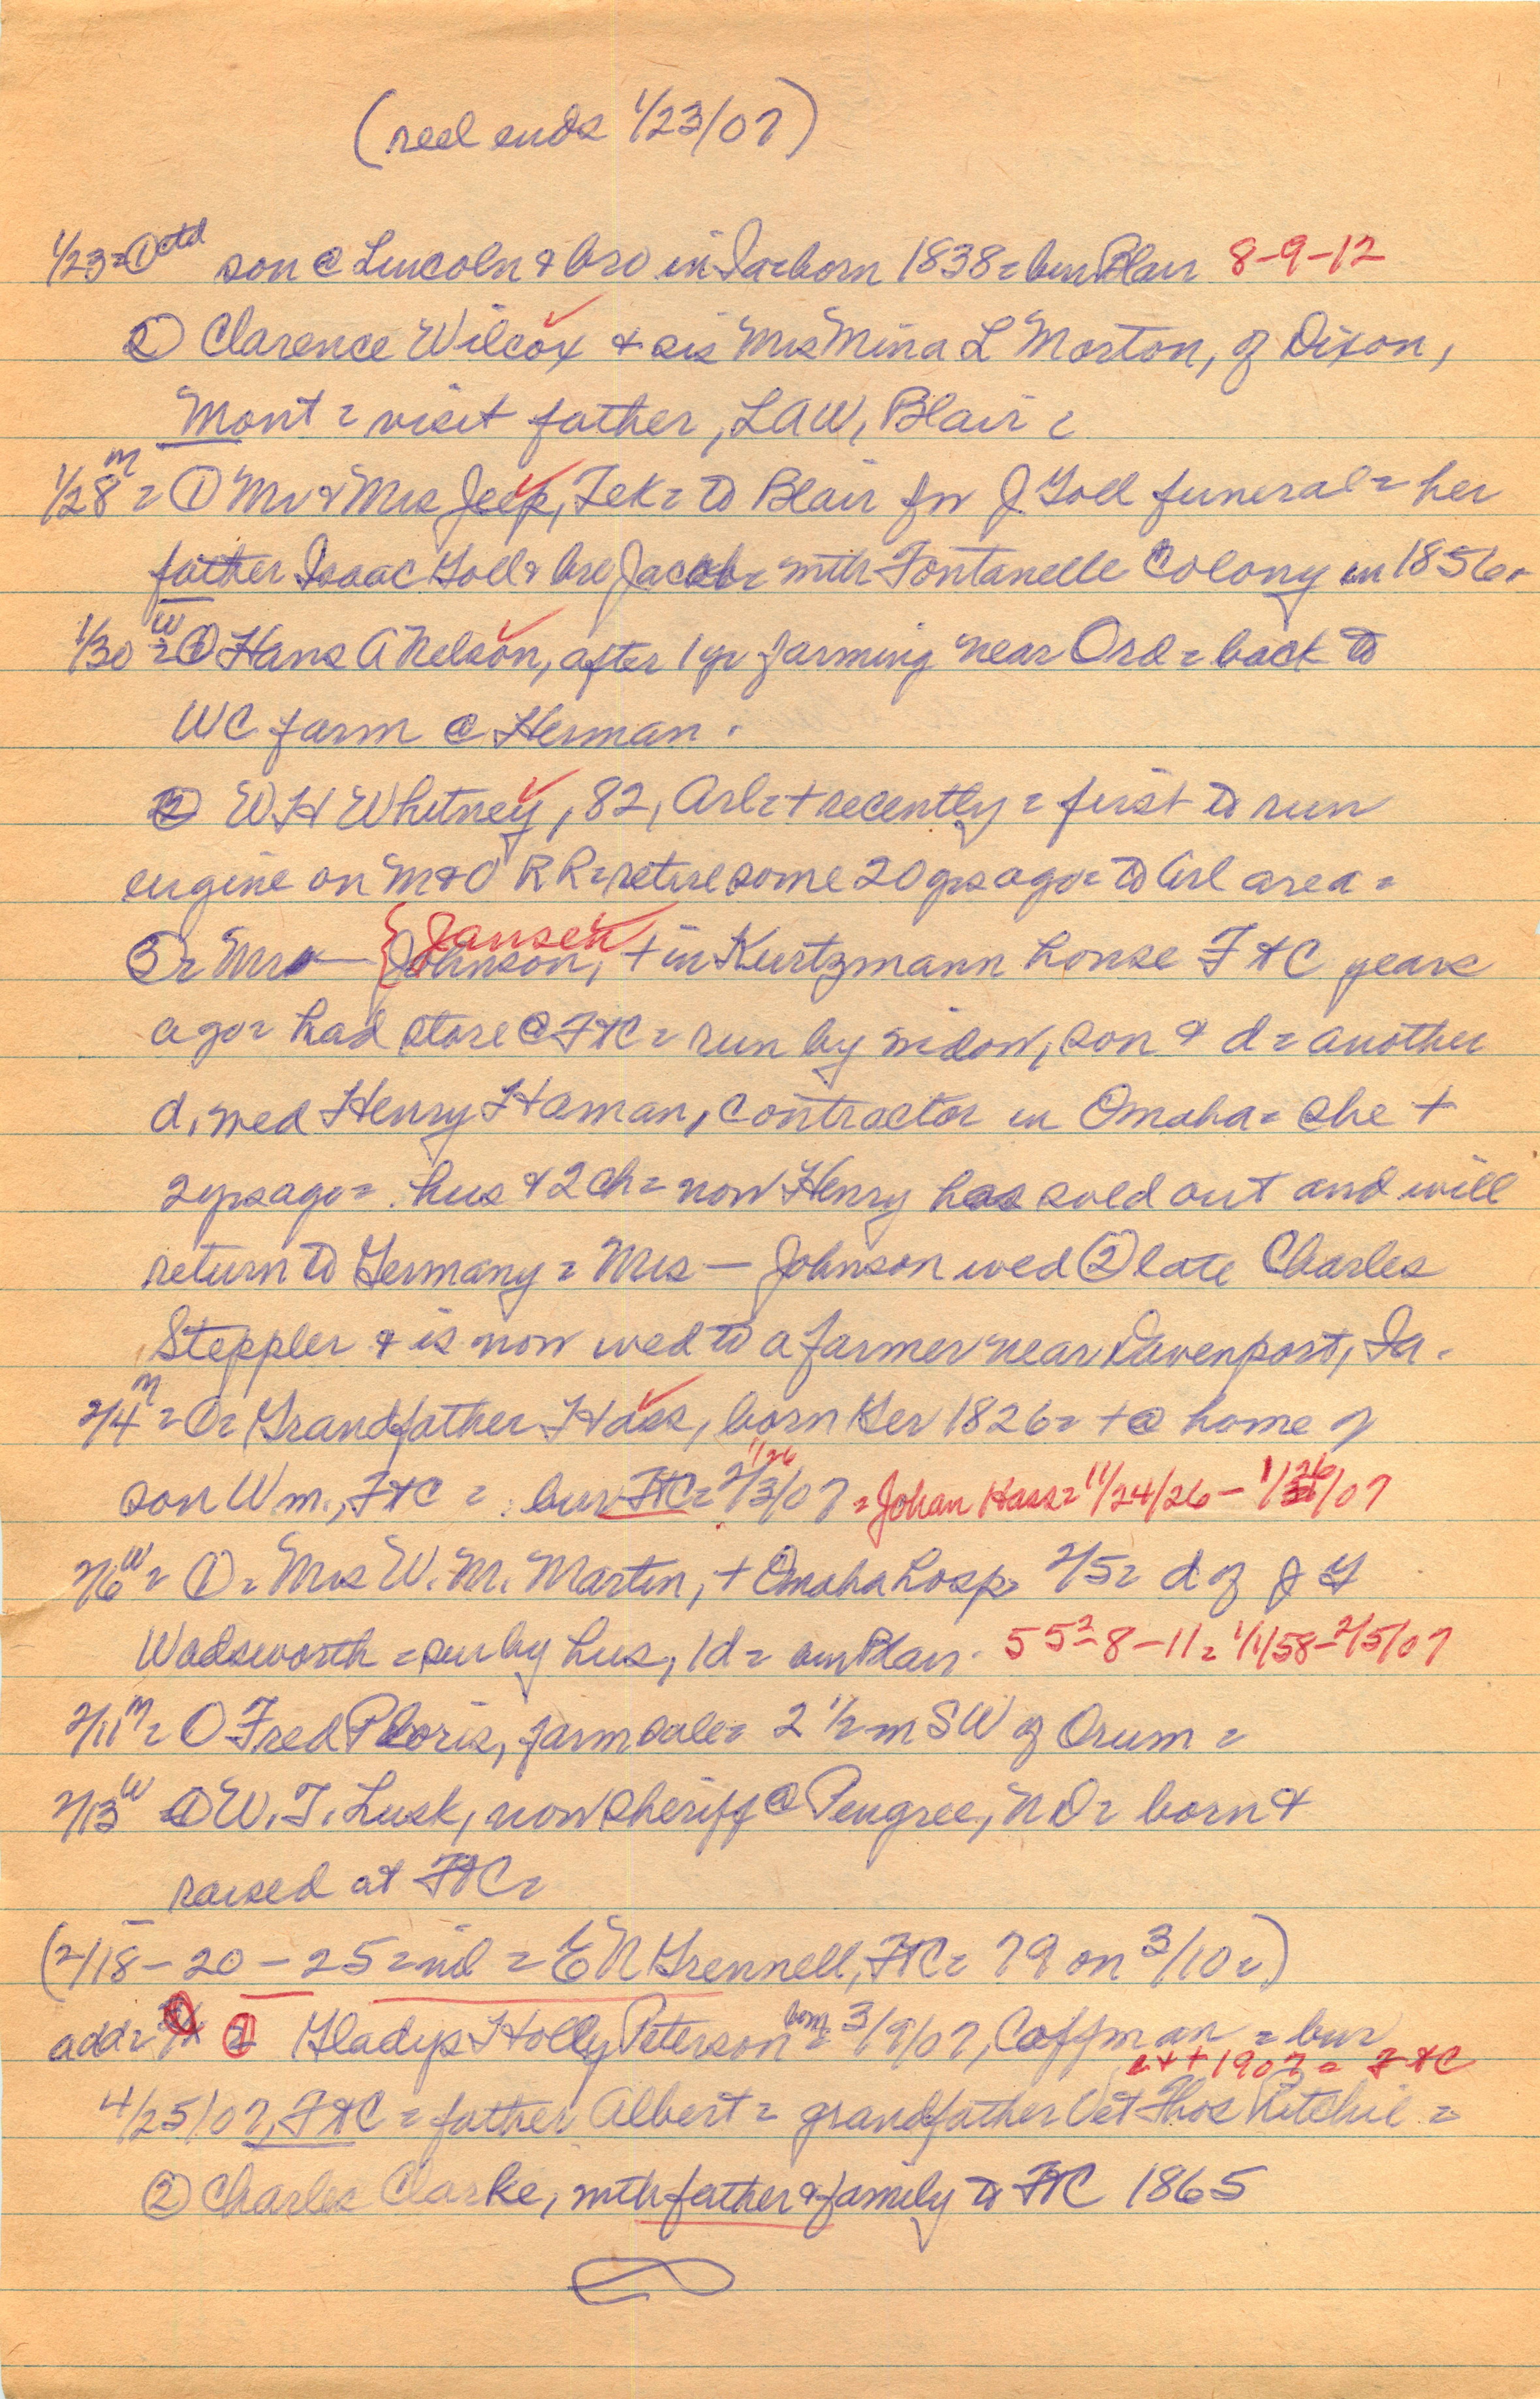 (reel ends 1/23/07)
1/23 = ① ctd son @ Lincoln & bro in Ia = born 1838 = bur Blair 8-9-12
② Clarence Wilcox & sis Mrs Mina L Morton, of Dixon,
Mont = visit father, LAW, Blair =
1/28 m = ① Mr & Mrs Jeep, Tek = to Blair for J Goll funeral = her
father Isaac Goll & bro Jacob = with Fontanelle Colony in 1856.
1/30 w = ① Hans A Nelson, after 1 yr farming near Ord = back to
WC farm @ Herman.
② W H Whitney, 82, Arl = + recently = first to run
engine on M&O RR = retire some 20 yrs ago = to Arl area =
③ = Mr — {Johnson, Jansen + in Kurtzmann house FtC years
ago = had store @ FtC = run by widow, son & d = another
d, wed Henry Haman, contractor in Omaha = she +
2 yrs ago = hus & 2 ch = now Henry has sold out and will
return to Germany = Mrs — Johnson wed ② late Charles
Steppler & is now wed to a farmer near Davenport, Ia.
2/4 m = ① = Grandfather Hass, born Ger 1826 = + @ home of
son Wm., FtC = bur FtC = 2/3/07 1/26 = Johan Hass = 11/24/26 - 1/26/07
2/6 w = ① = Mrs W. M. Martin, + Omaha hosp = 2/5 = d of J G
Wadsworth = sur by hus, 1 d = bur Blair. 55 - 8 - 11 = 1/1/58 - 2/5/07
2/11 m = ① Fred Ploris, farm sale = 2 1/2 m SW of Orum =
2/13 w ① W. T. Lusk, now sheriff @ Pengree, ND = born &
raised at FtC =
(2/18 - 20 - 25 = nil = E N Grennell, FtC = 79 on 3/10 =)
add = ① Gladys Holly Peterson born = 3/9/07, Coffman = bur
1907 = FtC
4/25/07, FtC = father Albert = grandfather Vet Thos Ritchie =
② Charles Clarke, with father & family to FtC 1865